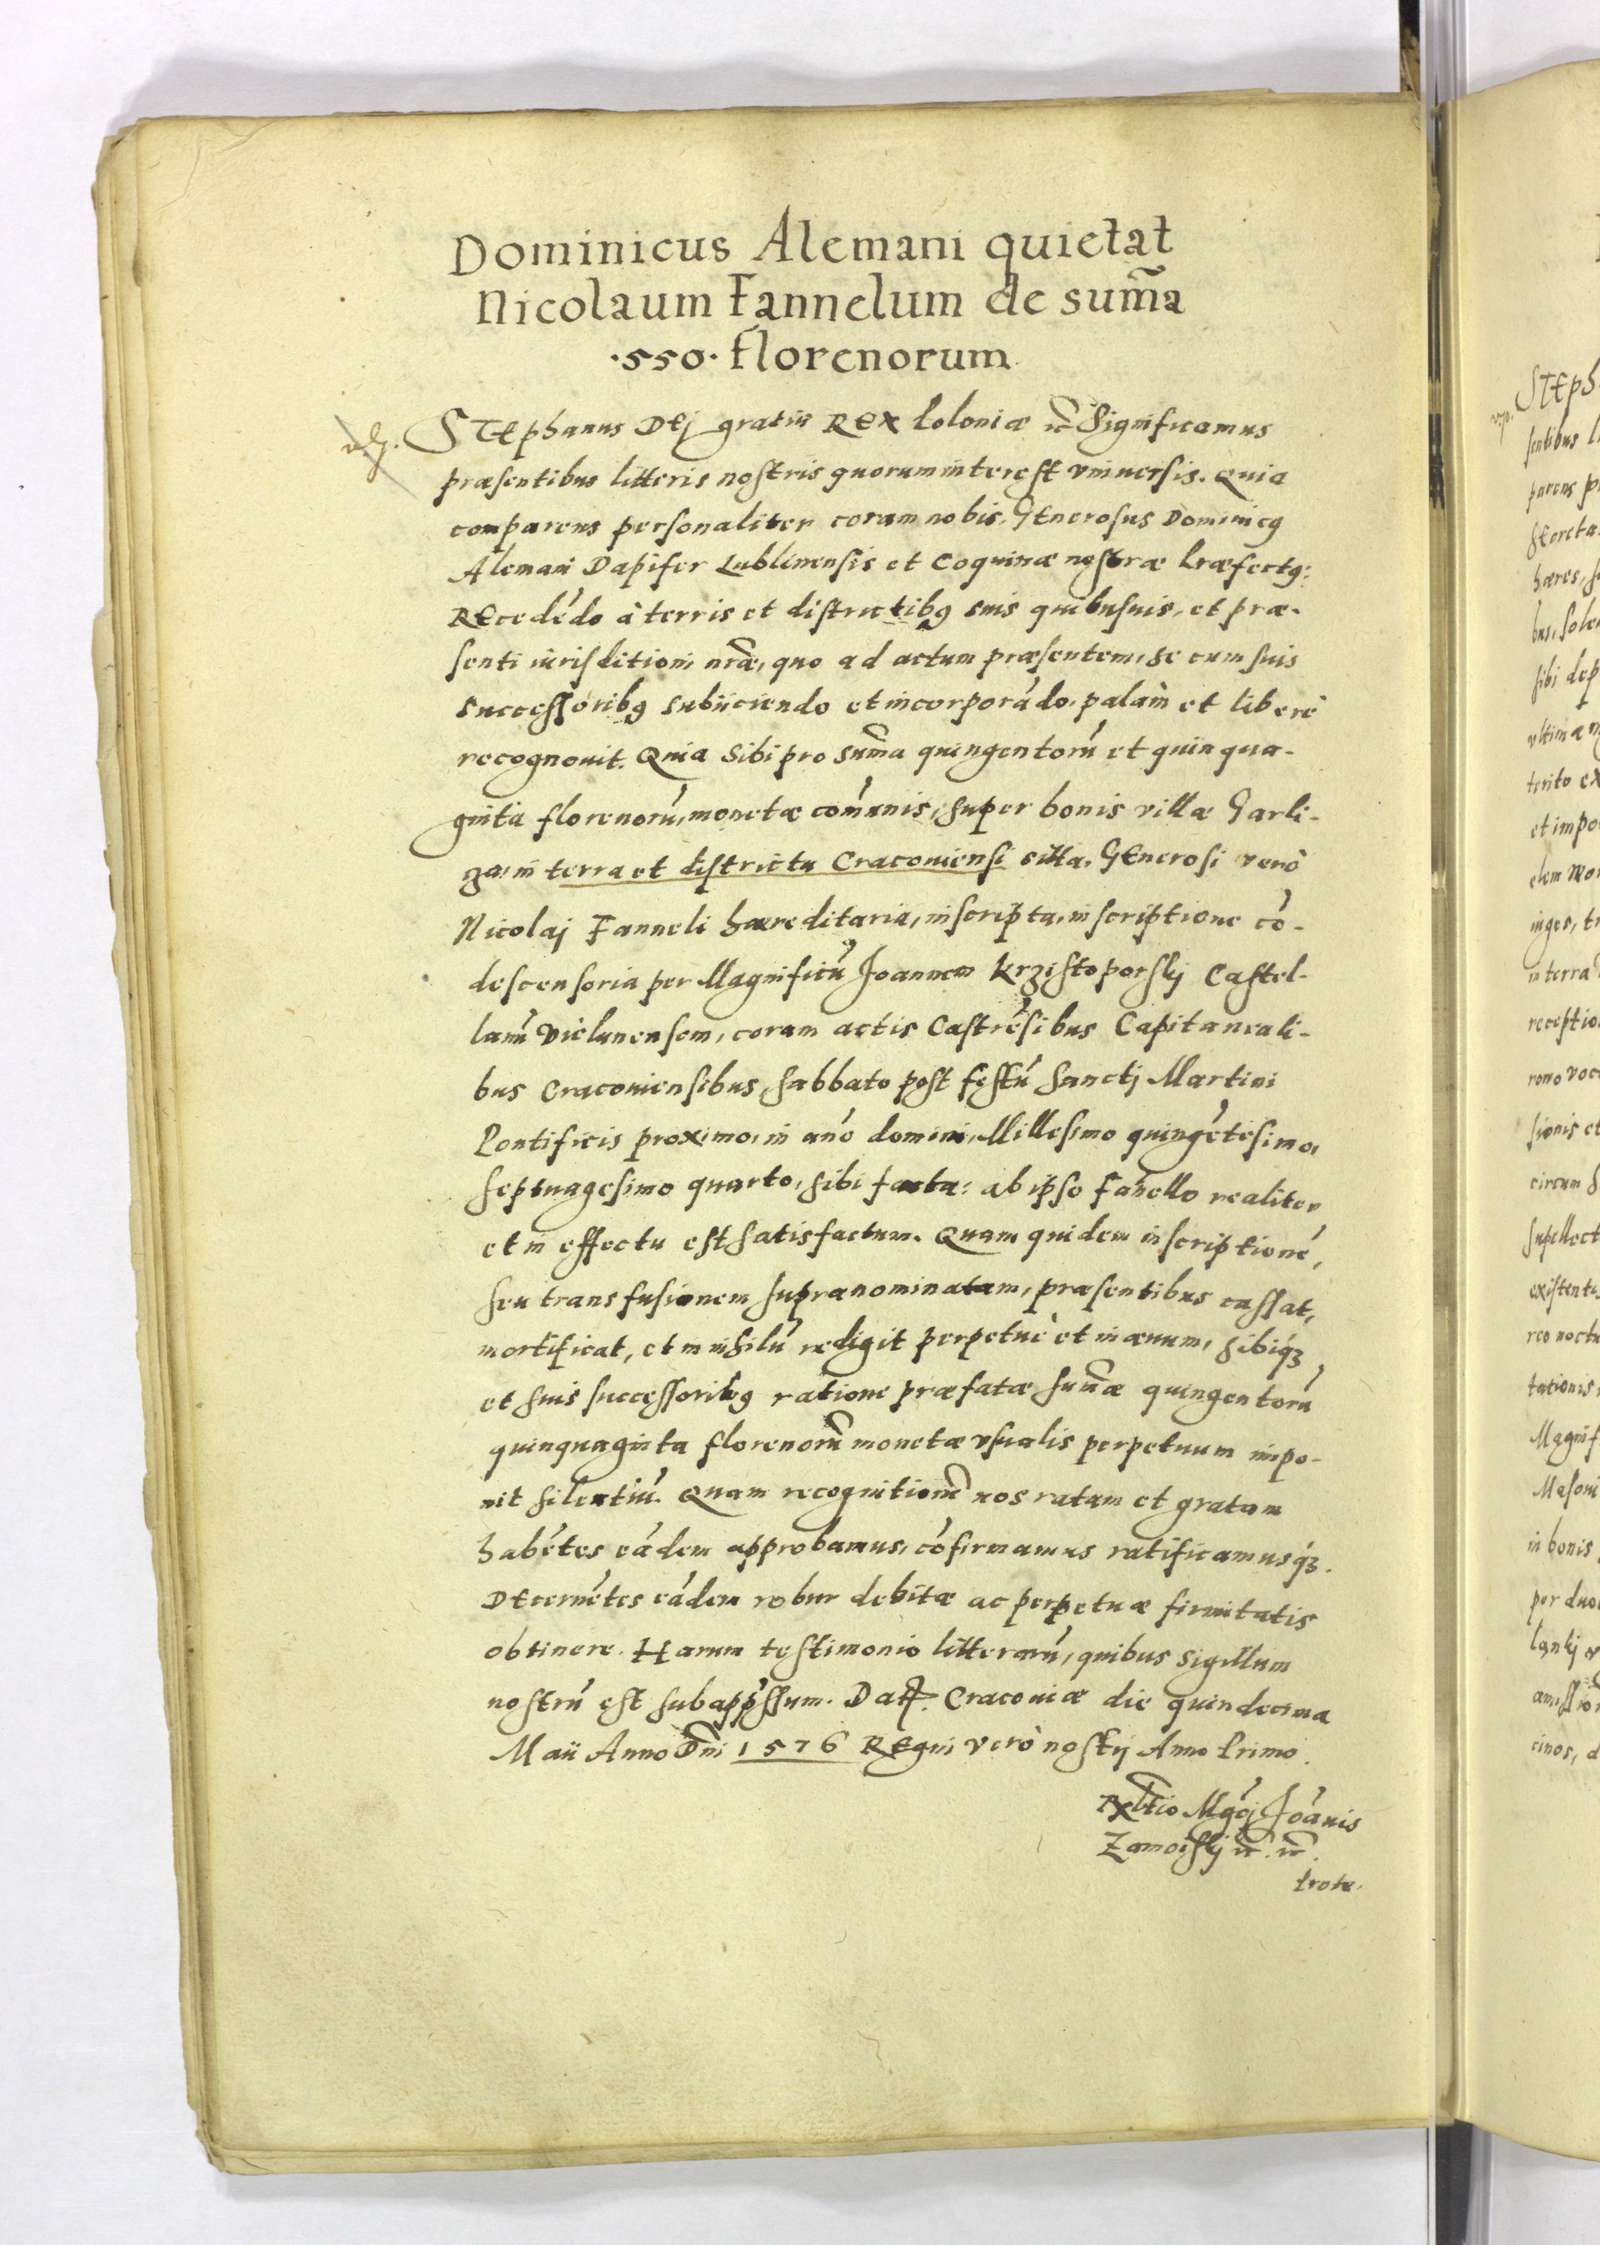 Dominicus Alemani quietat
Nicolaum Fannelum de sum̃a
·550· florenorum
STEphanus DEj gratia REX Poloniæ &c̃ Significamus
præsentibus litteris nostris quorum interest vniuersis. Quia
comparens personaliter coram nobis, GEnerosus Dominicꝰ
Alemani Dapifer Lublinensis et Coquinæ nostræ Præfectꝰ:
REcedẽdo à terris et districtibꝰ suis quibusuis, et præ-
senti iurisditioni nr̃æ, quo ad actum præsentem, se cum suis
successoribꝰ subijciendo et incorporãdo, palàm et liberè
recognouit. Quia Sibi pro sum̃a quingentorũ et quinqua-
ginta florenorũ, monetæ com̃unis, super bonis villæ Garli-
za, in terra et districtu Cracouiensi sitta, GEnerosi verò
Nicolaj Fanneli hæreditaria, inscripta, inscriptione cõ-
descensoria per Magnificũ Joannem Krzistoporskj Castel-
lanũ Vielunensem, coram actis Castrẽsibus Capitaneali-
bus Cracouiensibus, sabbato post festũ Sanctj Martini
Pontificis proximo, in anõ domini, Millesimo quingẽtesimo,
septuagesimo quarto, sibi facta: ab ipso Fañello realiter
et in effectu est satisfactum. Quam quidem inscriptionẽ,
seu transfusionem supranominatam, præsentibus cassat,
mortificat, et in nihilũ redigit perpetuè et in æuum, sibiqꝫ
et suis successoribꝰ ratione præfatæ sum̃æ quingentorũ
quinquaginta florenorũ monetæ vsualis perpetuum impo-
nit silentiũ. Quam recognitionẽ nos ratam et gratam
habẽtes eãdem approbamus, cõfirmamus ratificamusqꝫ.
DEcernẽtes eãdem robur debitæ ac perpetuæ firmitatis
obtinere. Harum testimonio litterarũ, quibus sigillum
nostrũ est subapp̃ssum. Datt. Cracouiæ die quindecima
Maii Anno Dñi 1576 REgni verò nostrj Anno Primo.
Rlt̃io Mg̃cj Joãnis
Zamoiskj &c̃. &c̃.